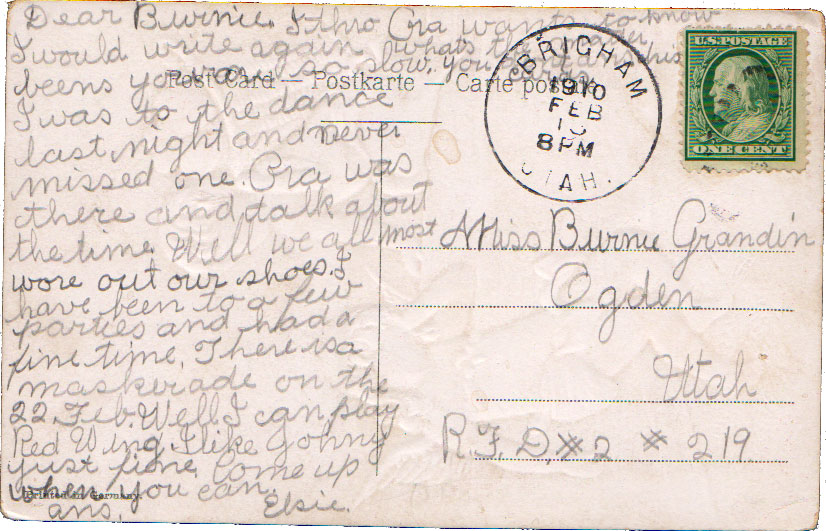 Dear Burnie. I thro Ora wants to know
I would write again whats the matter
beens you was so slow. you said this
Post Card — Postkarte — Carte postale
I was to the dance
last night and never
missed one. Ora was
there and talk about
the time. Well we all most
wore out our shoes. I
have been to a few
parties and had a
fine time. There is a
maskerade on the
22. Feb. Well I can play
Red Wing. I like Johny
just fine come up
when you can.
Printed in Germany.
ans. Elsie.
BRIGHAM
1910
FEB
8 PM
UTAH.
U.S. POSTAGE
ONE CENT
Miss Burnie Grandin
Ogden
Utah
R.F.D. #2 # 219